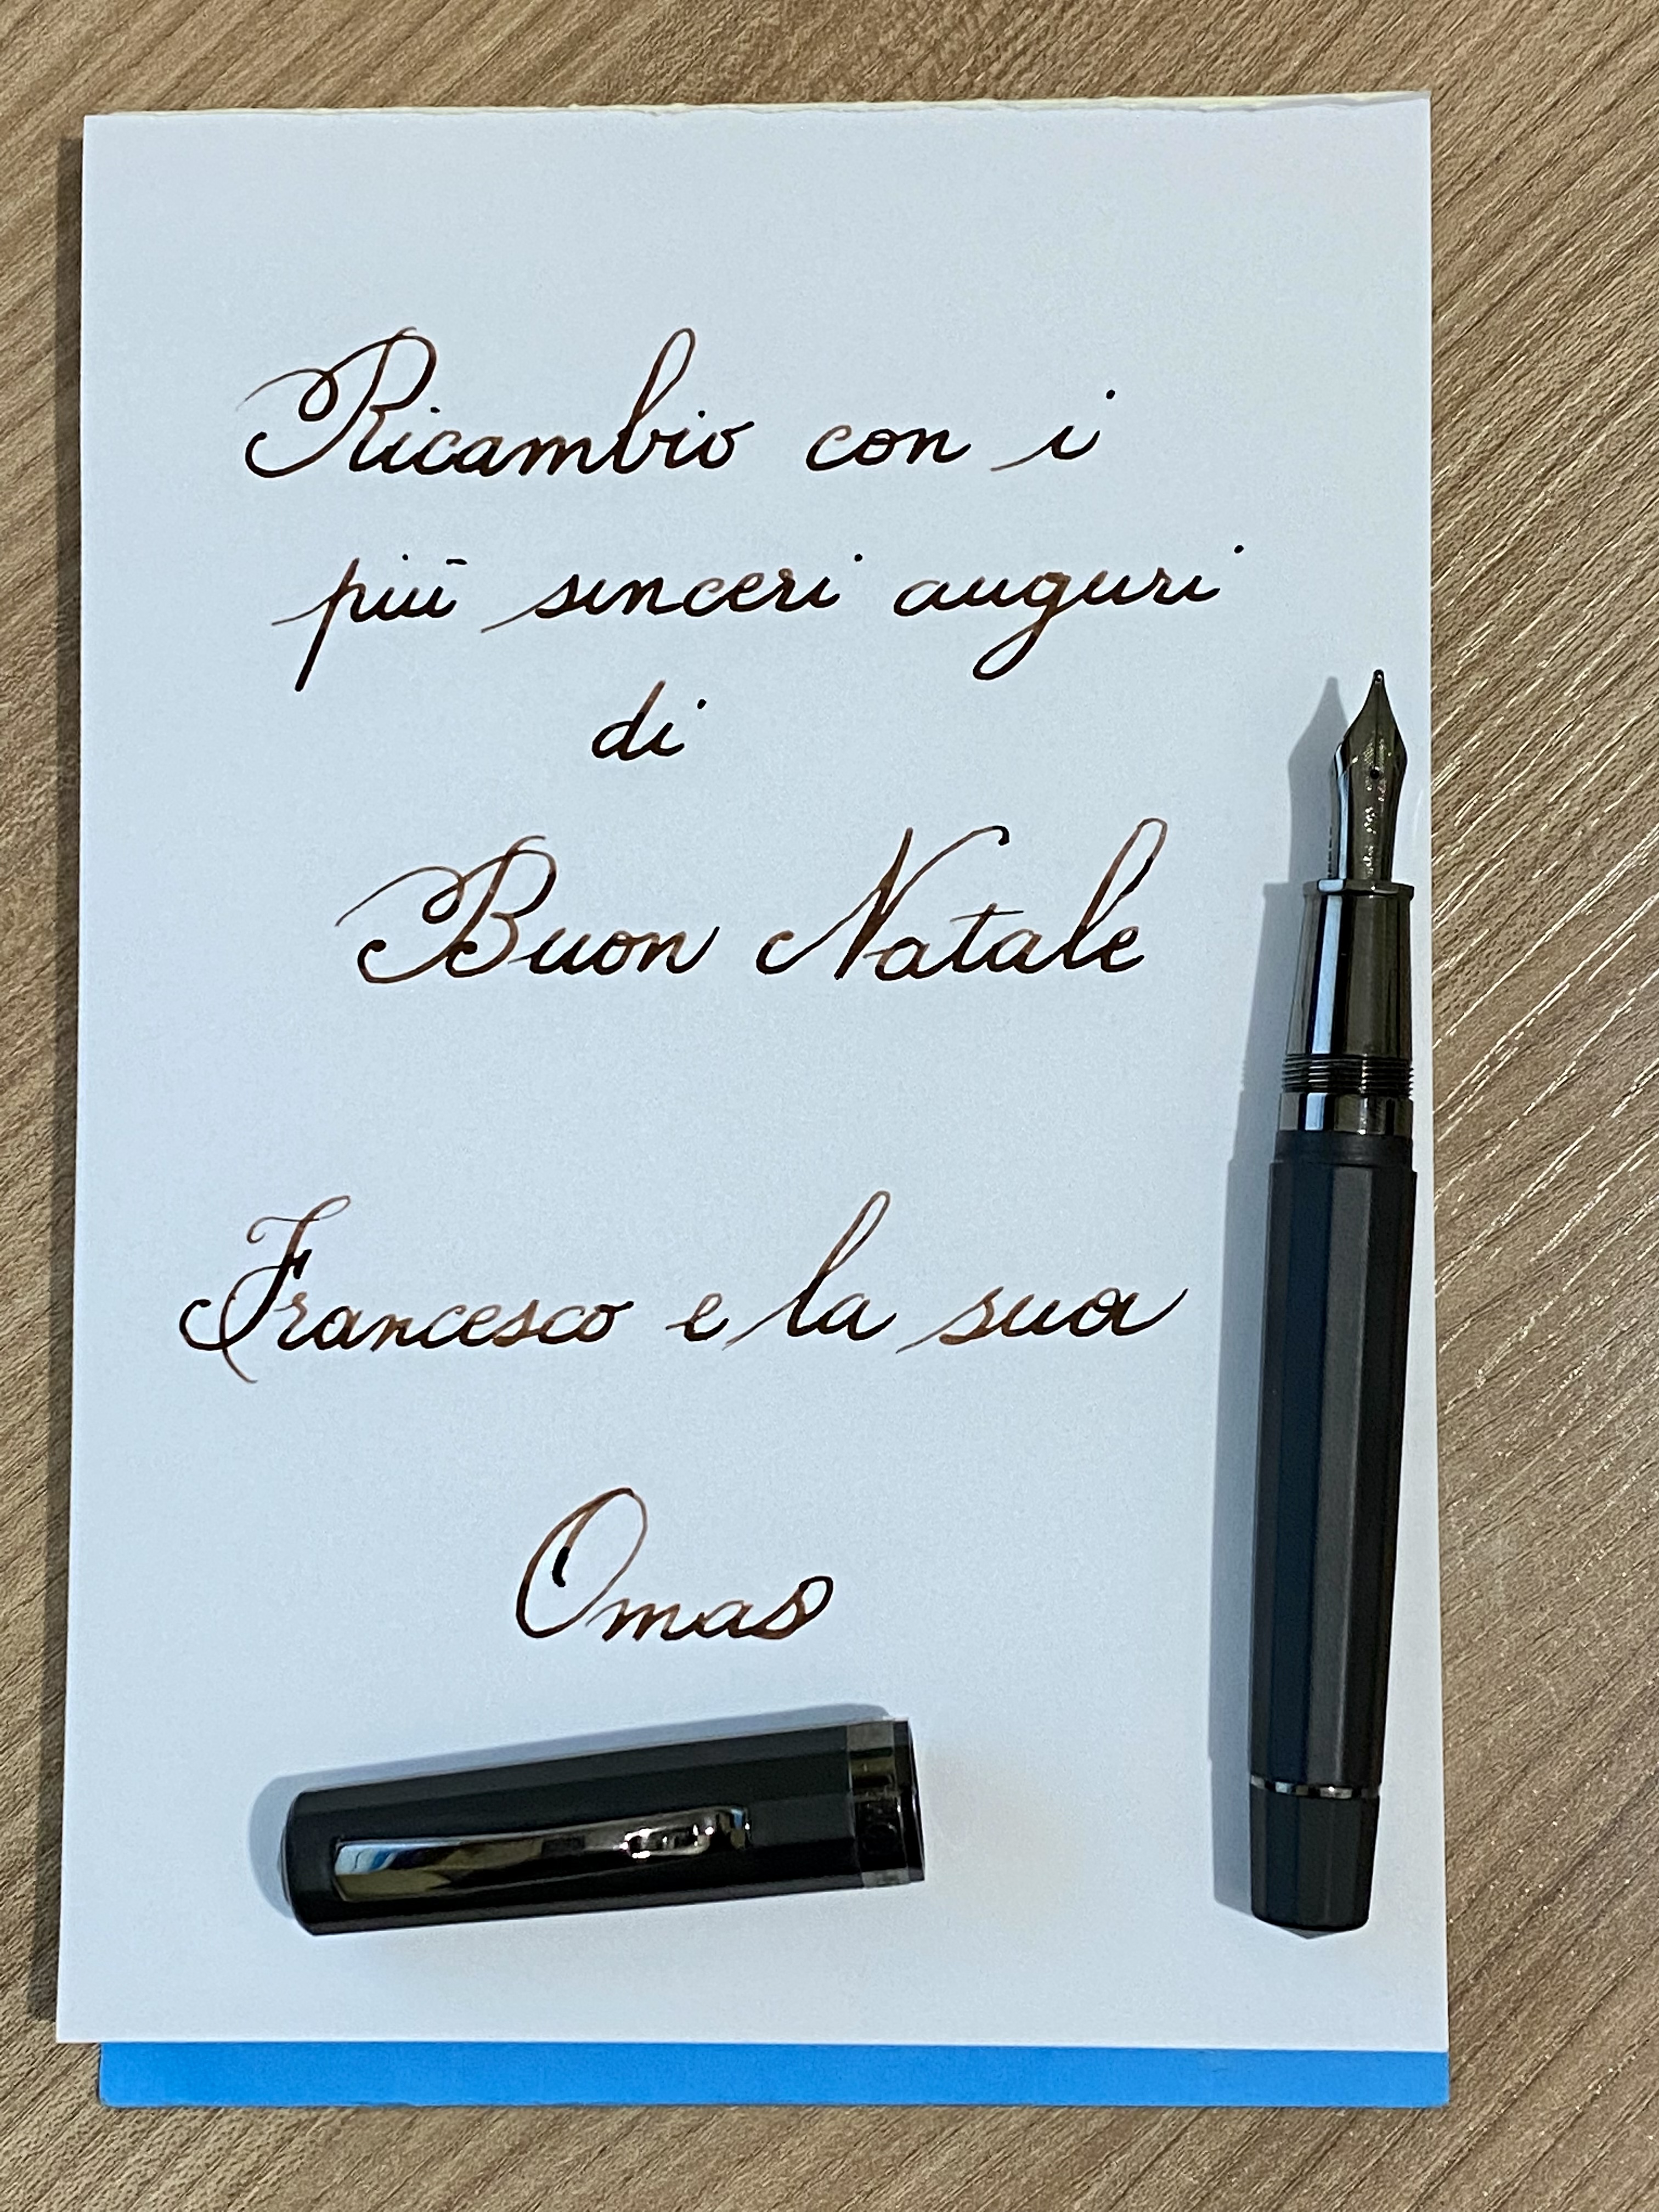 Ricambio con i
più sinceri auguri
di
Buon Natale
Francesco e la sua
Omas